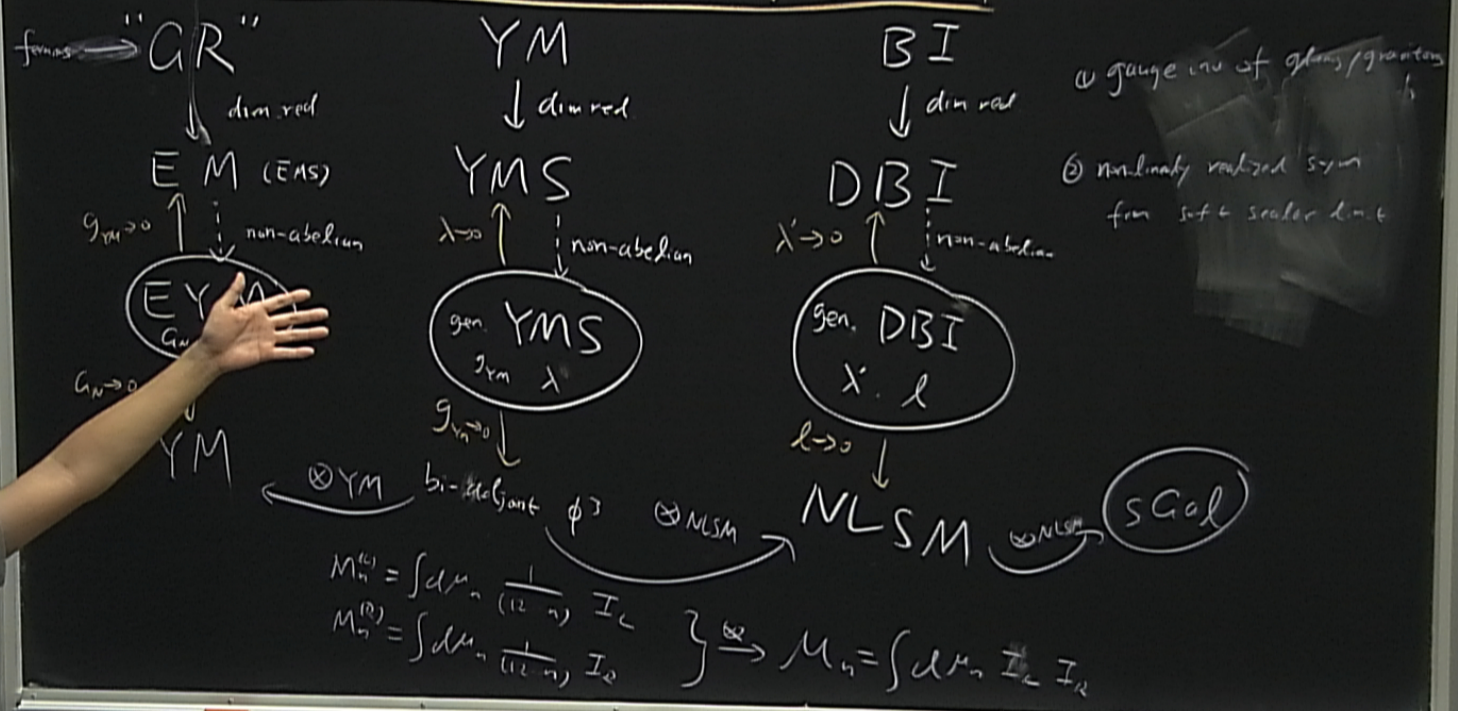 "GR"
dim red
EM (EMS)
g_YM→0
non-abelian
EYM
G_N
G_N→0
YM
YM
dim red
YMS
λ→0
non-abelian
gen. YMS
g_YM λ
g_YM→0
bi-adjoint φ³
BI
dim red
DBI
λ'→0
non-abelian
gen. DBI
λ'. l
l→0
NLSM
⊗YM
⊗NLSM
⊗NLSM
sGal
① gauge inv of gluons/gravitons
② non-linearly realized sym
from soft scalar limit
M_n^(L) = ∫dμ_n 1/(12 n) I_L
M_n^(R) = ∫dμ_n 1/(12 n) I_R
} ⊗→ M_n = ∫dμ_n I_L I_R